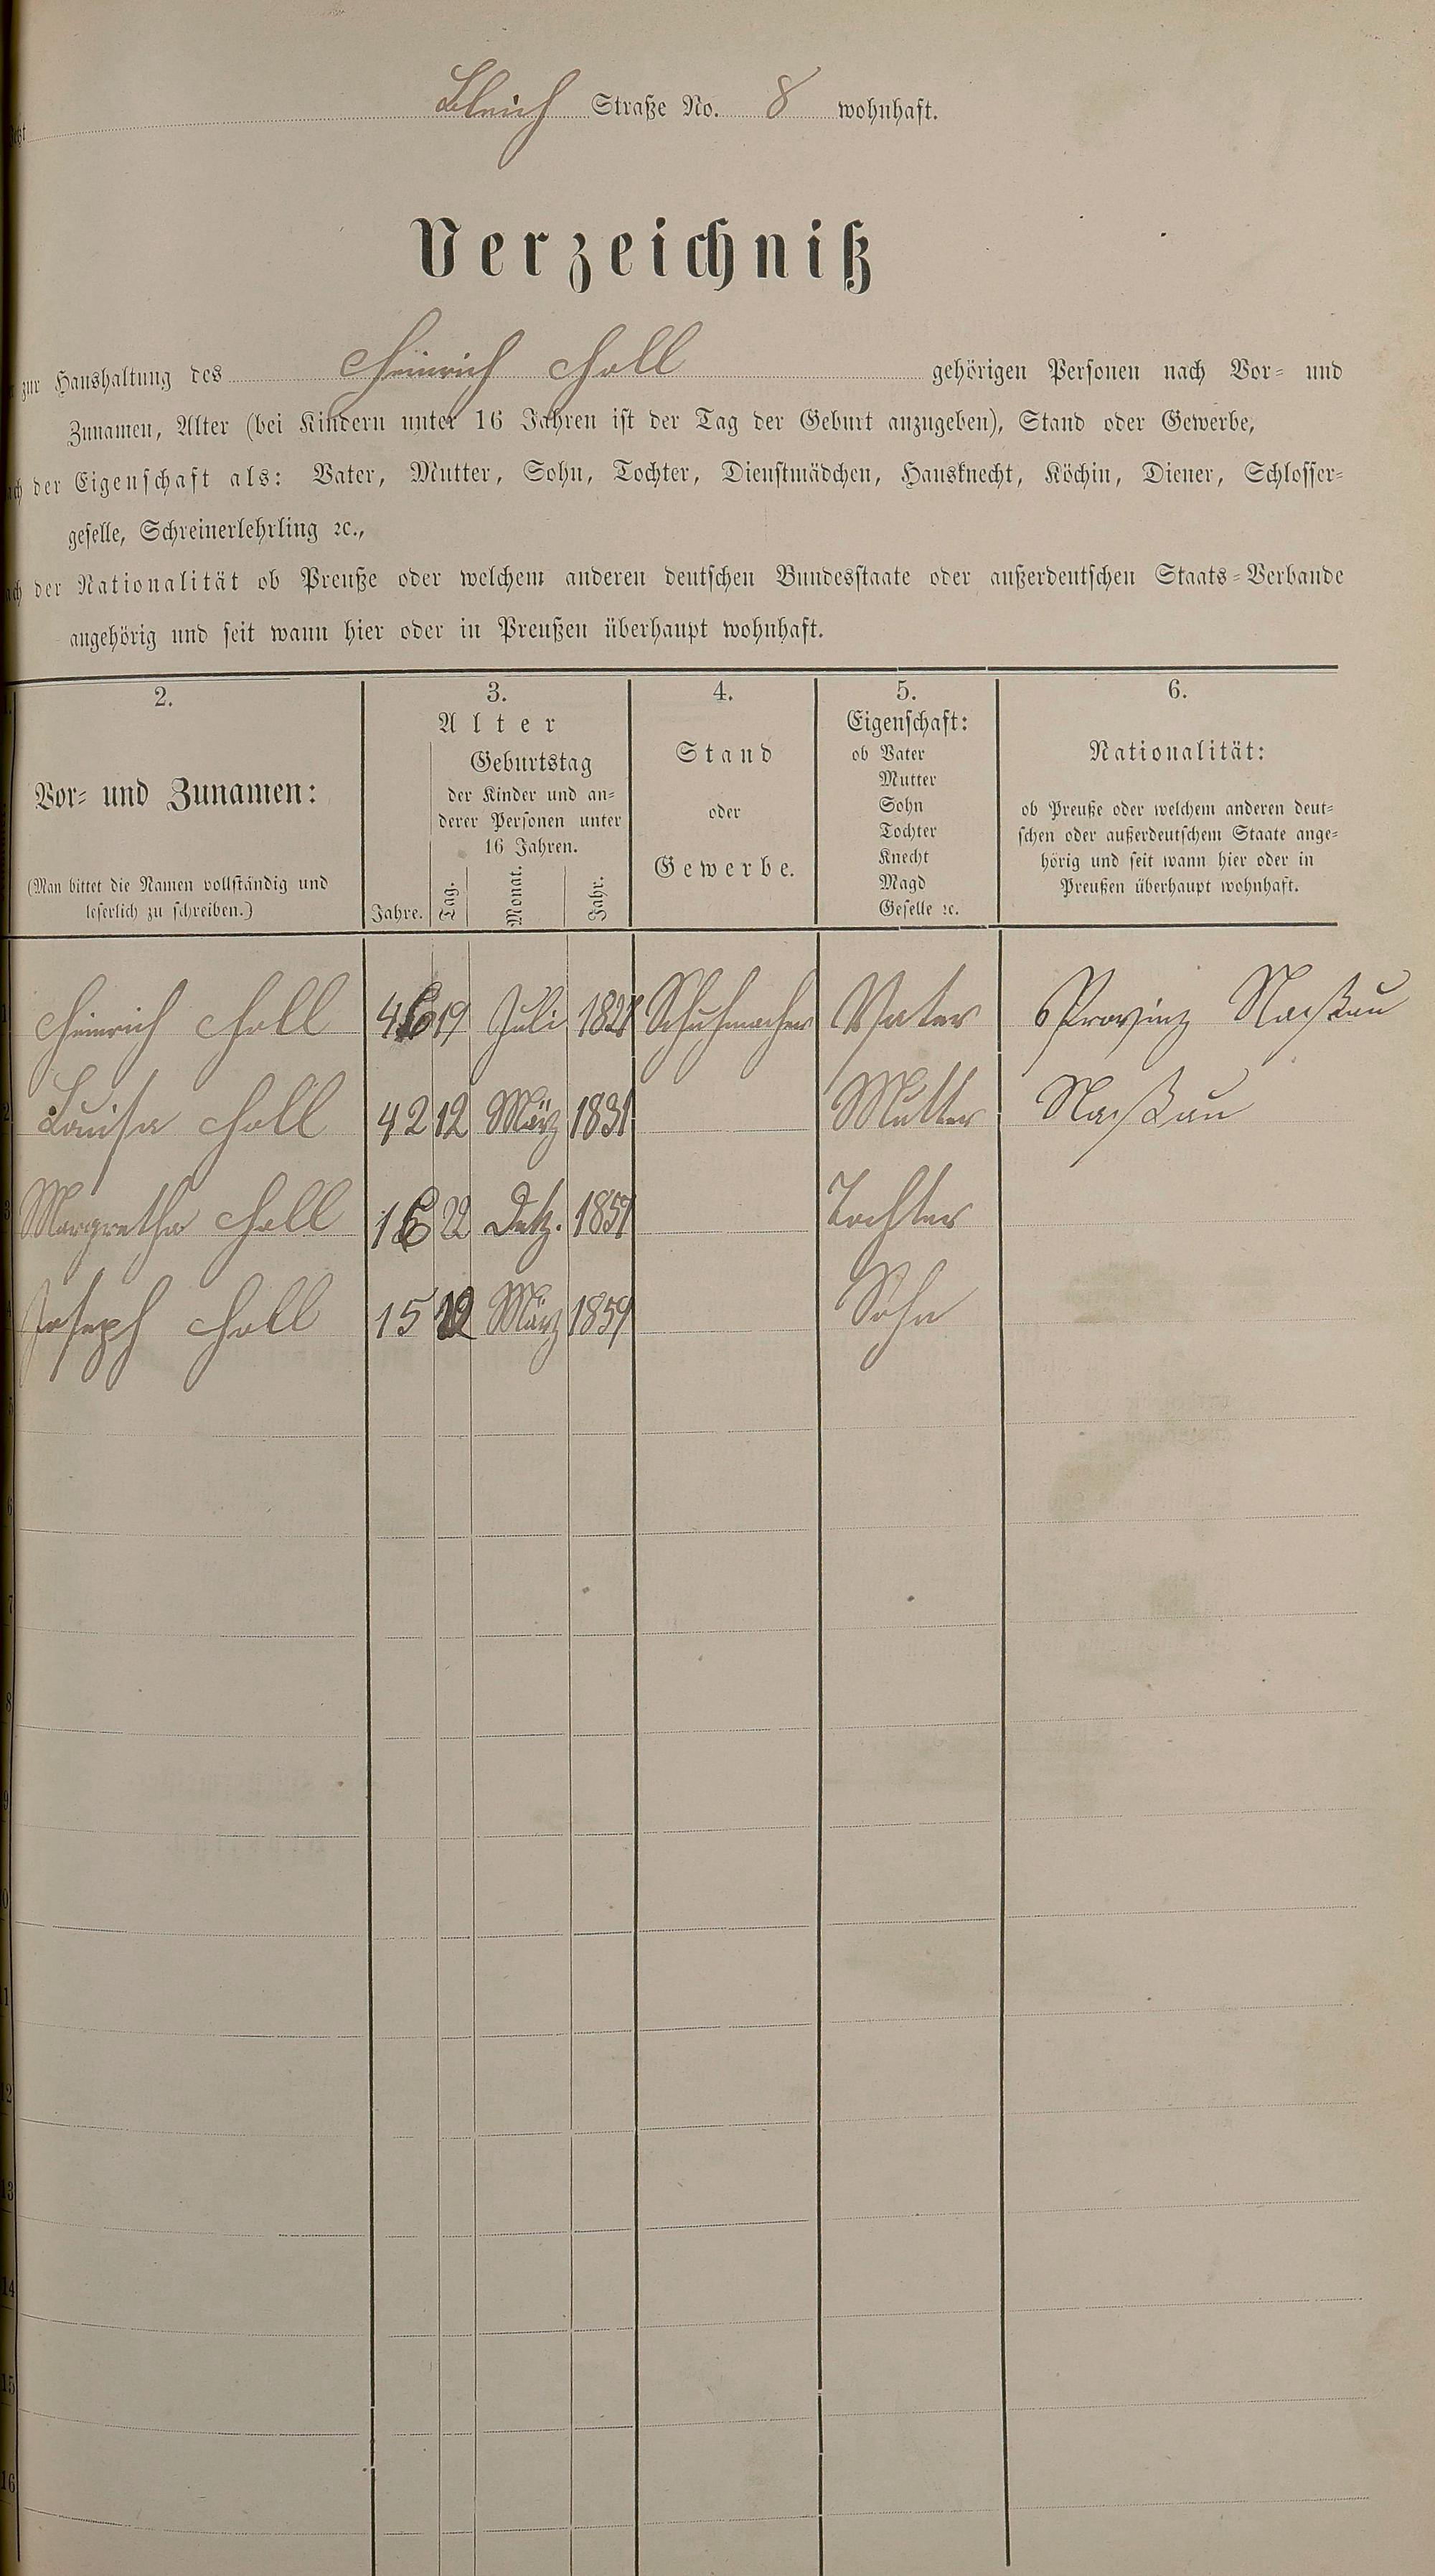 Bleich Straße No. 8 wohnhaft.
Verzeichniß
zur Haushaltung des HeinrichHoll gehörigen Personen nach Vor- und
Zunamen, Alter (bei Kindern unter 16 Jahren ist der Tag der Geburt anzugeben), Stand oder Gewerbe,
der Eigenschaft als: Vater, Mutter, Sohn, Tochter, Dienstmädchen, Hausknecht, Köchin, Diener, Schlosser-
geselle, Schreinerlehrling ꝛc.,
der Nationalität ob Preuße oder welchem anderen deutschen Bundesstaate oder außerdeutschen Staats-Verbande
angehörig und seit wann hier oder in Preußen überhaupt wohnhaft.
2. 3. 4. 5. 6.
Vor- und Zunamen:
(Man bittet die Namen vollständig und
leserlich zu schreiben.)
Alter
Geburtstag
der Kinder und an-
derer Personen unter
16 Jahren.
Jahre. Tag. Monat. Jahr.
Stand
oder
Gewerbe.
Eigenschaft:
ob Vater
Mutter
Sohn
Tochter
Knecht
Magd
Geselle ꝛc.
Nationalität:
ob Preuße oder welchem anderen deut-
schen oder außerdeutschem Staate ange-
hörig und seit wann hier oder in
Preußen überhaupt wohnhaft.
Heinrich Holl 46 19 Juli Schuhmacher Vater Provinz Naßau
Louisa Holl 42 12 März 1831 Mutter Naßau
Margretha Holl 16 22 Detz. 1857 Tochter
Joseph Holl 15 März 1859 Sohn
6
7
8
9
13
14
15
16